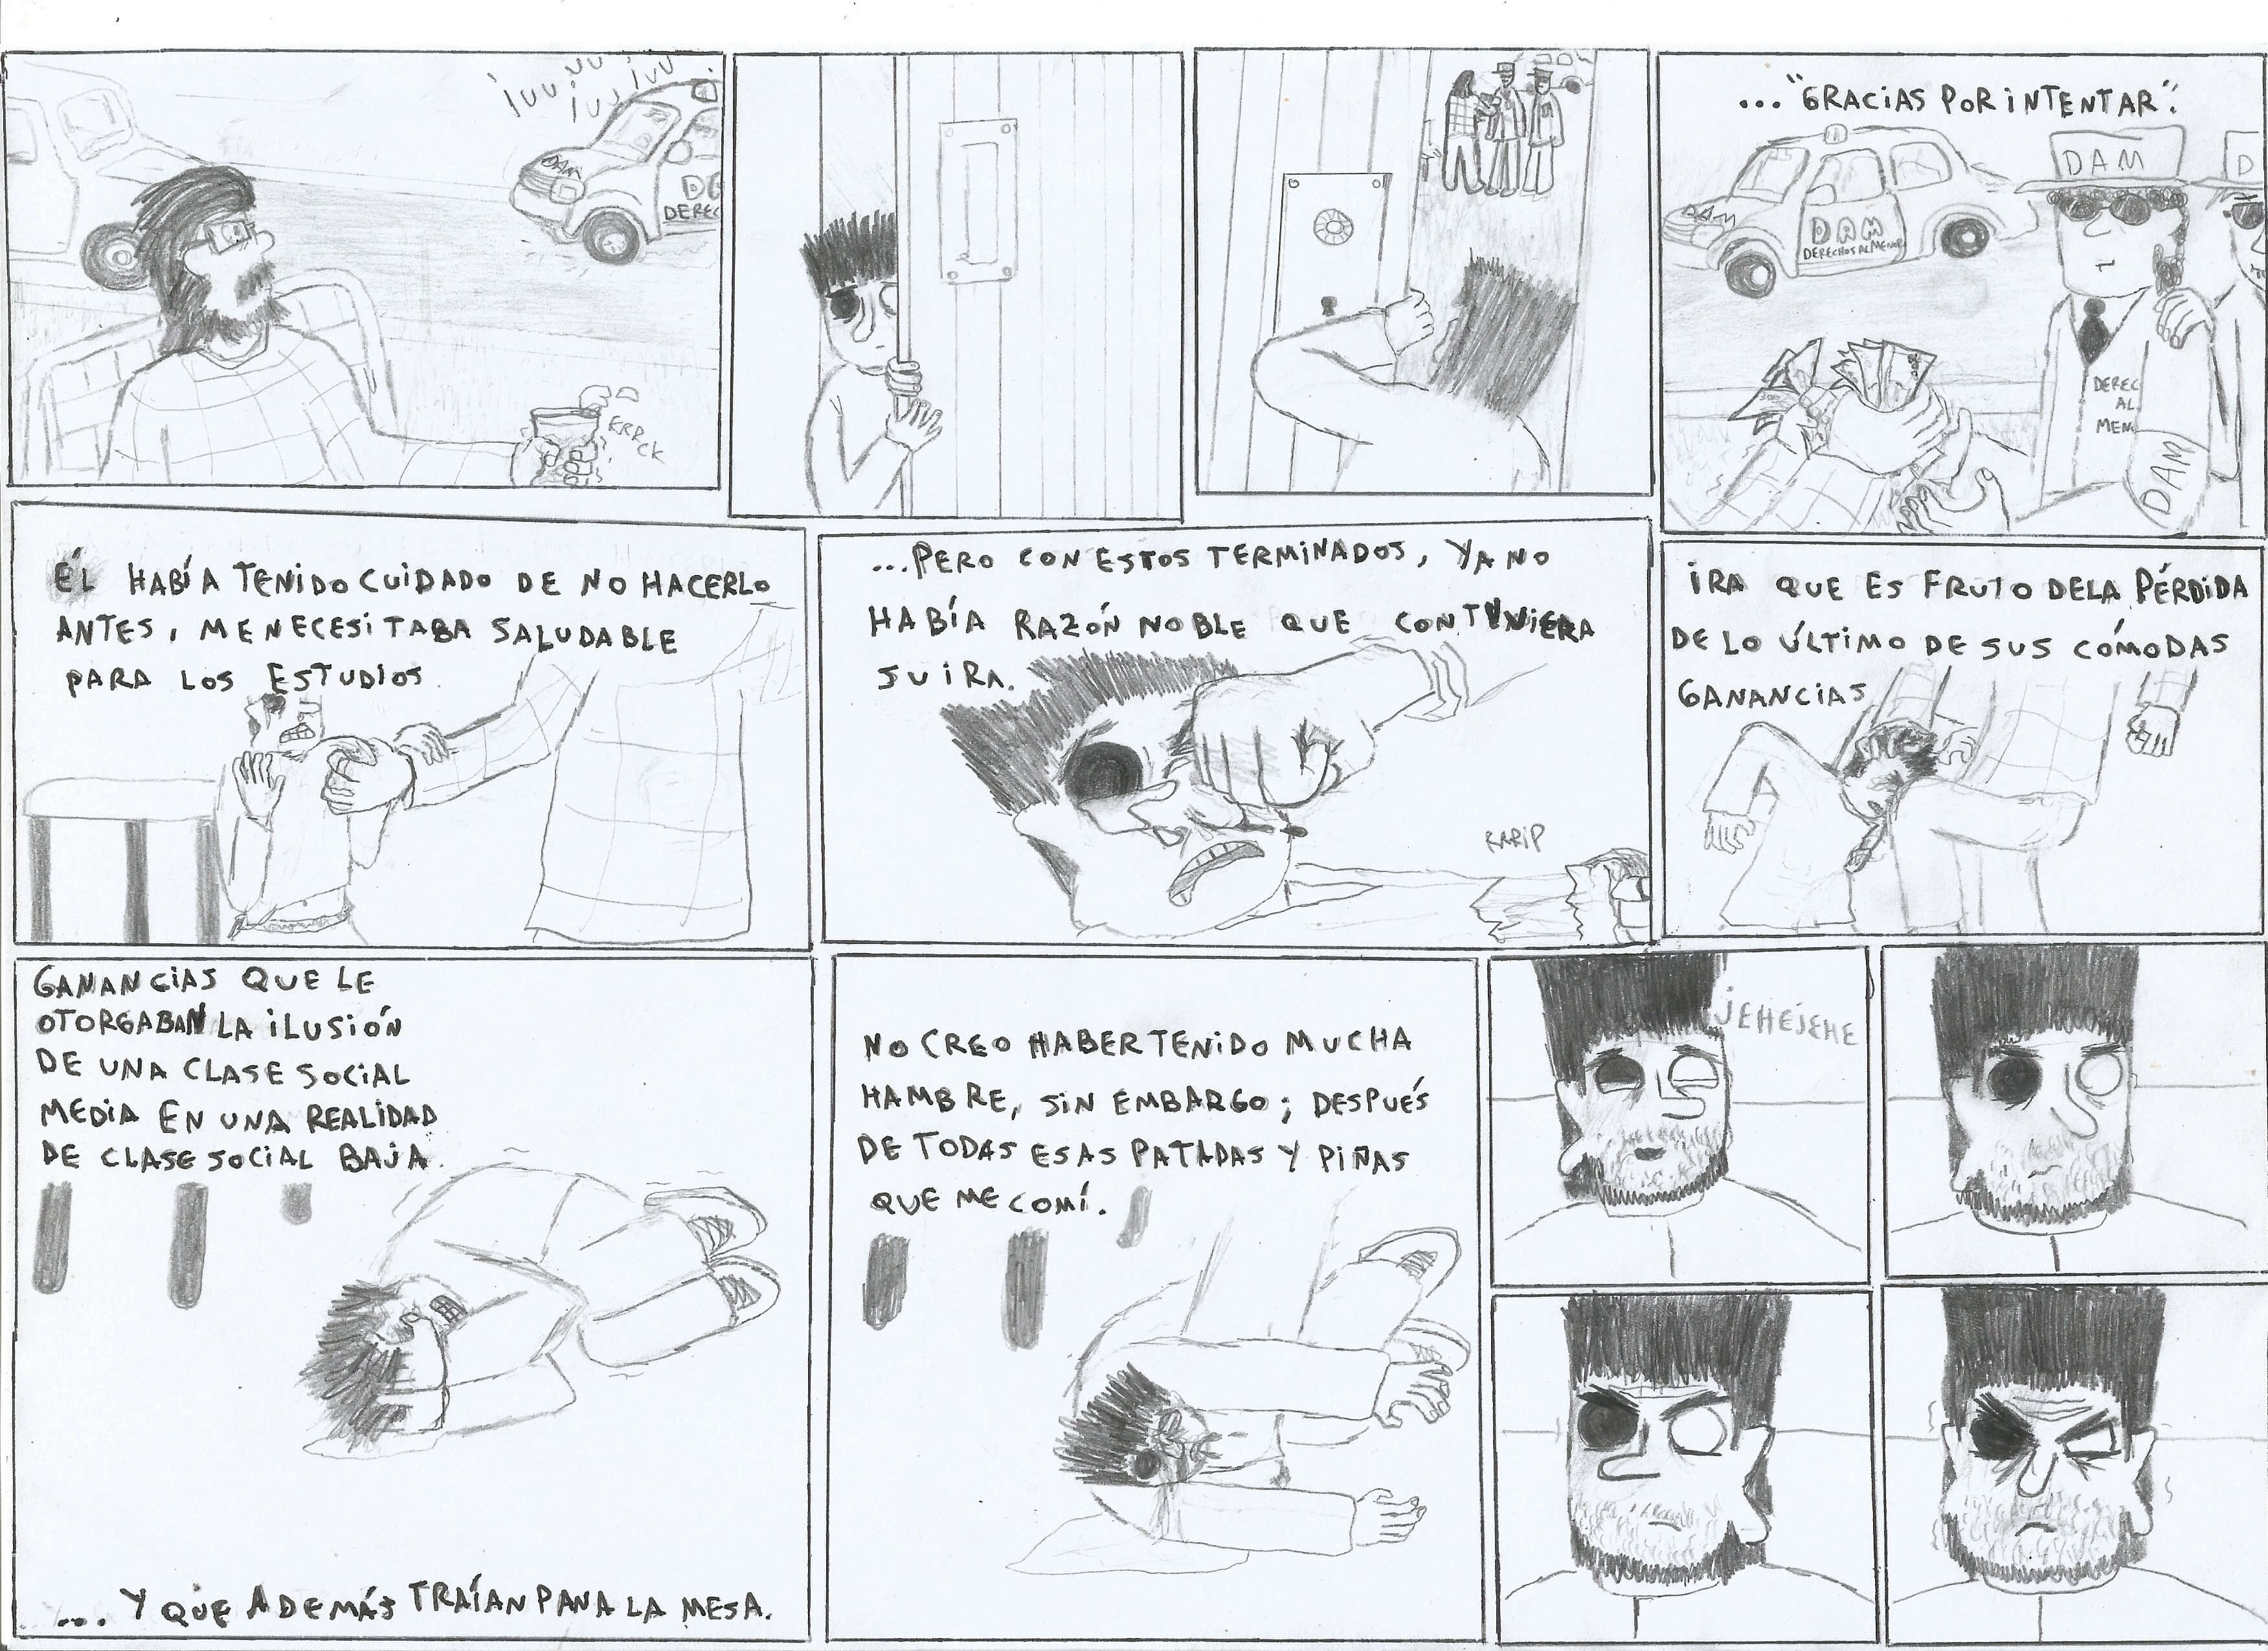 ¡UU
UU
¡UU
¡UU
DAM
DE
DEREC
ERRCK
..."GRACIAS POR INTENTAR".
DAM
D
DAM
DAM
DERECHOS AL MENOR
DEREC
AL
MEN
DAM
ÉL HABÍA TENIDO CUIDADO DE NO HACERLO
ANTES, ME NECESITABA SALUDABLE
PARA LOS ESTUDIOS
...PERO CON ESTOS TERMINADOS, YA NO
HABÍA RAZÓN NOBLE QUE CONTUVIERA
SU IRA.
RARIP
IRA QUE ES FRUTO DE LA PÉRDIDA
DE LO ÚLTIMO DE SUS CÓMODAS
GANANCIAS
GANANCIAS QUE LE
OTORGABAN LA ILUSIÓN
DE UNA CLASE SOCIAL
MEDIA EN UNA REALIDAD
DE CLASE SOCIAL BAJA.
... Y QUE ADEMÁS TRAÍAN PANA LA MESA.
NO CREO HABER TENIDO MUCHA
HAMBRE, SIN EMBARGO; DESPUÉS
DE TODAS ESAS PATADAS Y PIÑAS
QUE ME COMÍ.
JEHEJEHE